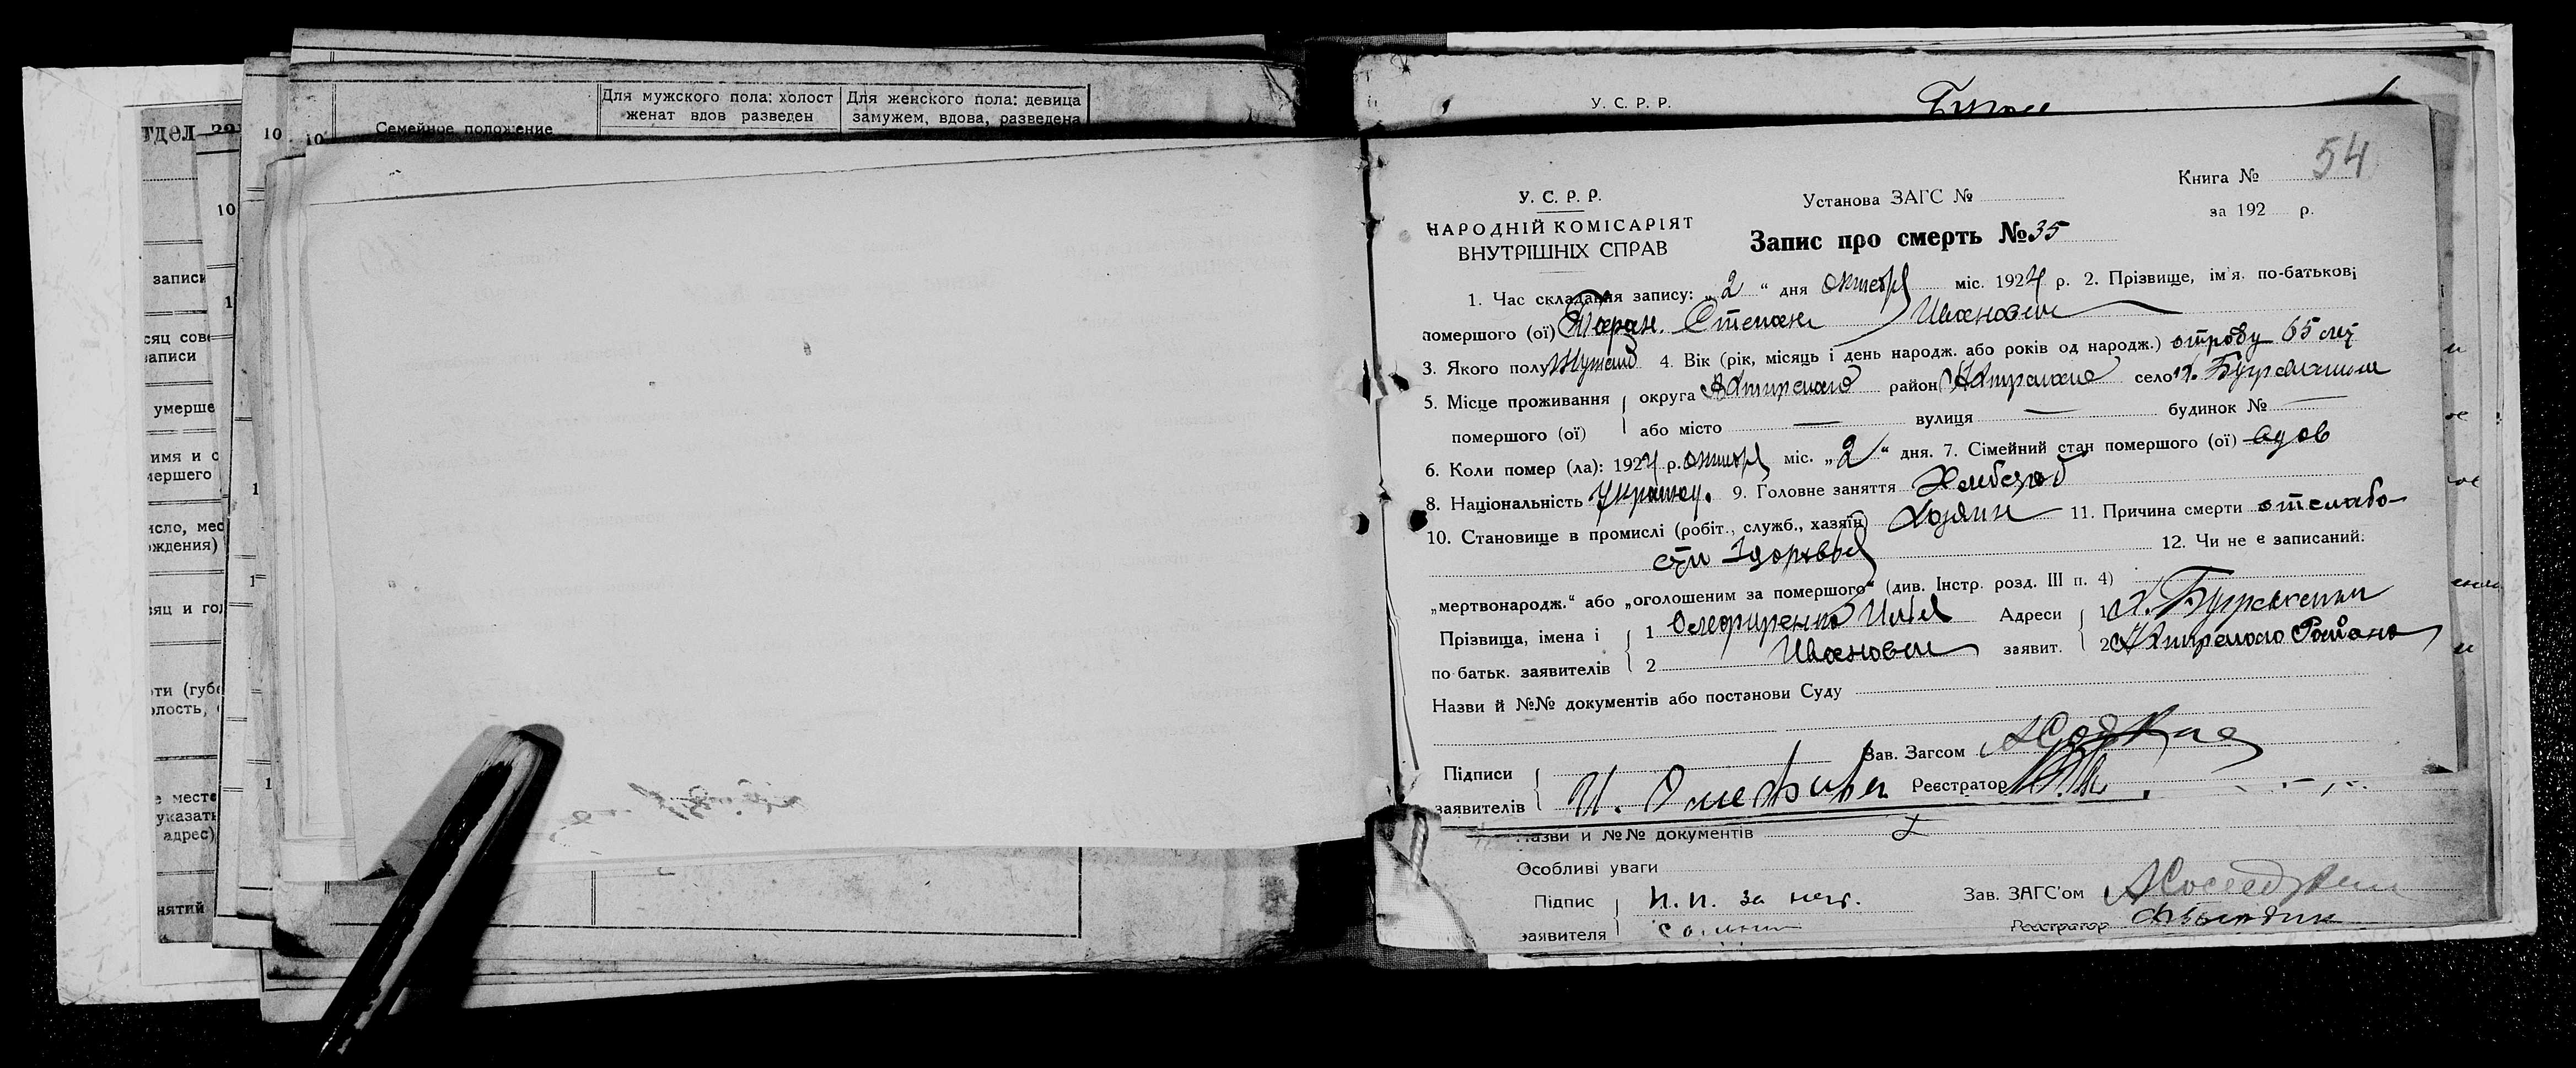 тдел
записи
сяц сове
записи
умерше
имя и о
мершего
исло, мес
ождения)
сяц и год
рти (губе
олость,
е месте
указать
адрес)
нятий
10
10
10
Семейное положение
Для мужского пола: холост
женат вдов разведен
Для женского пола: девица
замужем, вдова, разведена
У. С. Р. Р.
54
Книга №
за 192 р.
У. С. Р. Р.
НАРОДНІЙ КОМІСАРІЯТ
ВНУТРІШНІХ СПРАВ
Установа ЗАГС №
Запис про смерть № 35
1. Час складання запису: „ 2 “ дня октября міс. 1924 р. 2. Прізвище, ім'я, по-батькові
помершого (ої) Таран Степан Иванович
3. Якого полу Мужско 4. Вік (рік, місяць і день народж. або років од народж.) отроду 65 лет
5. Місце проживання помершого (ої) округа район село х.
або місто — вулиця — будинок № —
6. Коли помер (ла): 1924 р. октября міс. „ 2 “ дня. 7. Сімейний стан помершого (ої) вдов
8. Національність Украинц. 9. Головне заняття Хлебороб
10. Становище в промислі (робіт., служб., хазяїн) Хозяин 11. Причина смерти от слабо-
сти здоровья 12. Чи не є записаний:
„мертвонародж.“ або „оголошеним за помершого“ (див. Інстр. розд. III п. 4)
Прізвища, імена і по батьк. заявителів 1 Олефиренко Илья Адреси заявит. 1 х.
2 Иванович 2 Района
Назви й №№ документів або постанови Суду
Зав. Загсом
Підписи заявителів И. Олефирен Реєстратор
Назви и №№ документів
Особливі уваги
Підпис заявителя н. п. за нег. Зав. ЗАГС'ом
Реєстратор